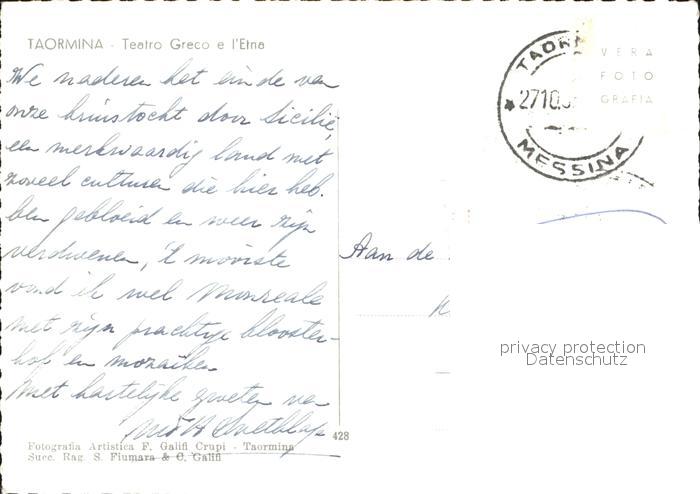 TAORMINA - Teatro Greco e l'Etna
We naderen het einde van
onze kruistocht door Sicilië,
een merkwaardig land met
zoveel culturen die hier heb.
ben gebloeid en weer zijn
verdwenen, 't mooiste
vond ik wel Monreale
met zijn prachtige klooster-
hof en mozaïken
Met hartelijke groeten van
428
Fotografia Artistica F. Galifi Crupi - Taormina
Succ. Rag. S. Fiumara & C. Galifi
TAOR
27 10
MESSINA
VERA
FOTO
GRAFIA
Aan de
privacy protection
Datenschutz